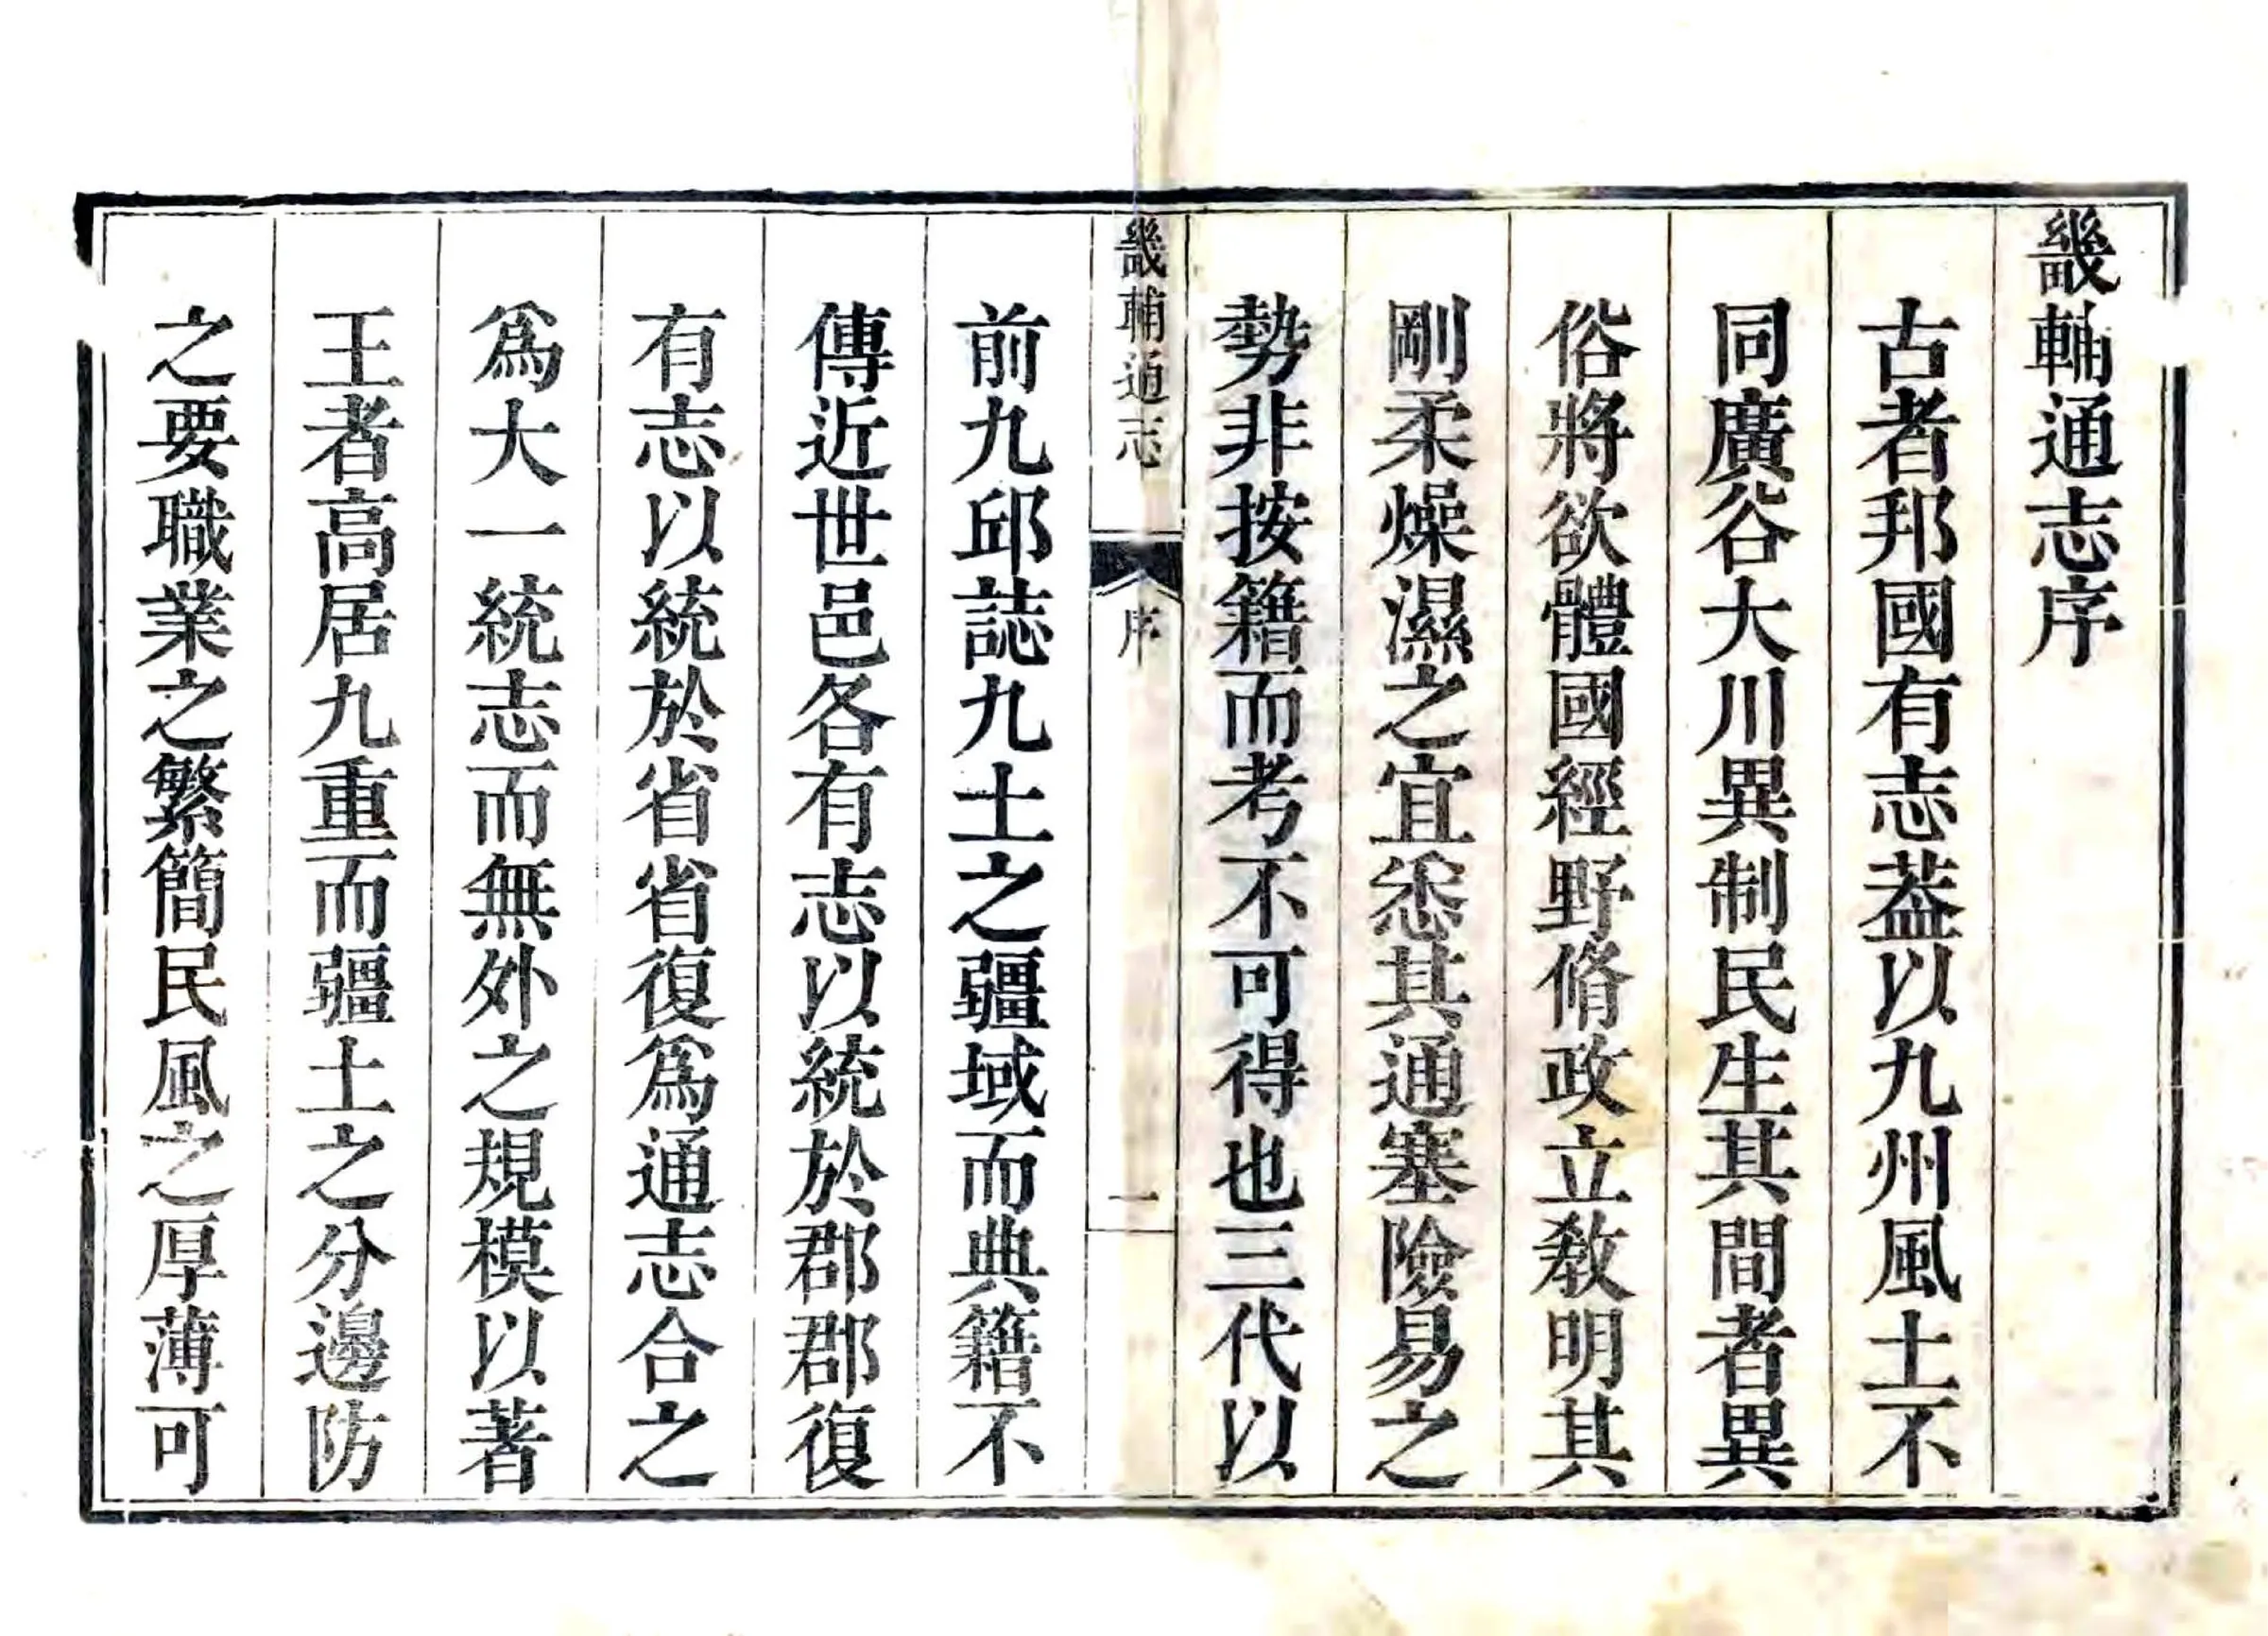 畿輔通志序
古者邦國有志葢以九州風土不
同廣谷大川異制民生其間者異
俗將欲體國經野脩政立敎明其
剛柔燥濕之宜悉其通塞險易之
勢非按籍而考不可得也三代以
畿輔通志 序 一
前九邱誌九土之疆域而典籍不
傳近世邑各有志以統於郡郡復
有志以統於省省復爲通志合之
爲大一統志而無外之規模以著
王者高居九重而疆土之分邊防
之要職業之繁簡民風之厚薄可